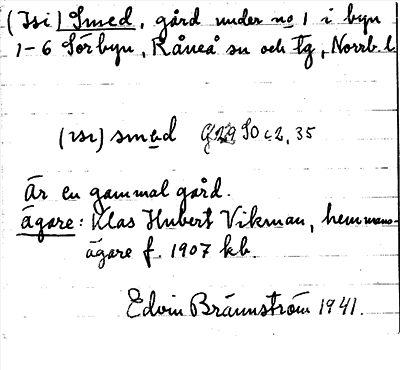 (Isi) Smed, gård under no 1 i byn
1-6 Sörbyn, Råneå sn och tg, Norrb. l.
(ɪsɪ) smed SO c 2, 35
Är en gammal gård.
ägare: Klas Hubert Vikman, hemmans-
ägare f. 1907 kb.
Edvin Brännström 1941.